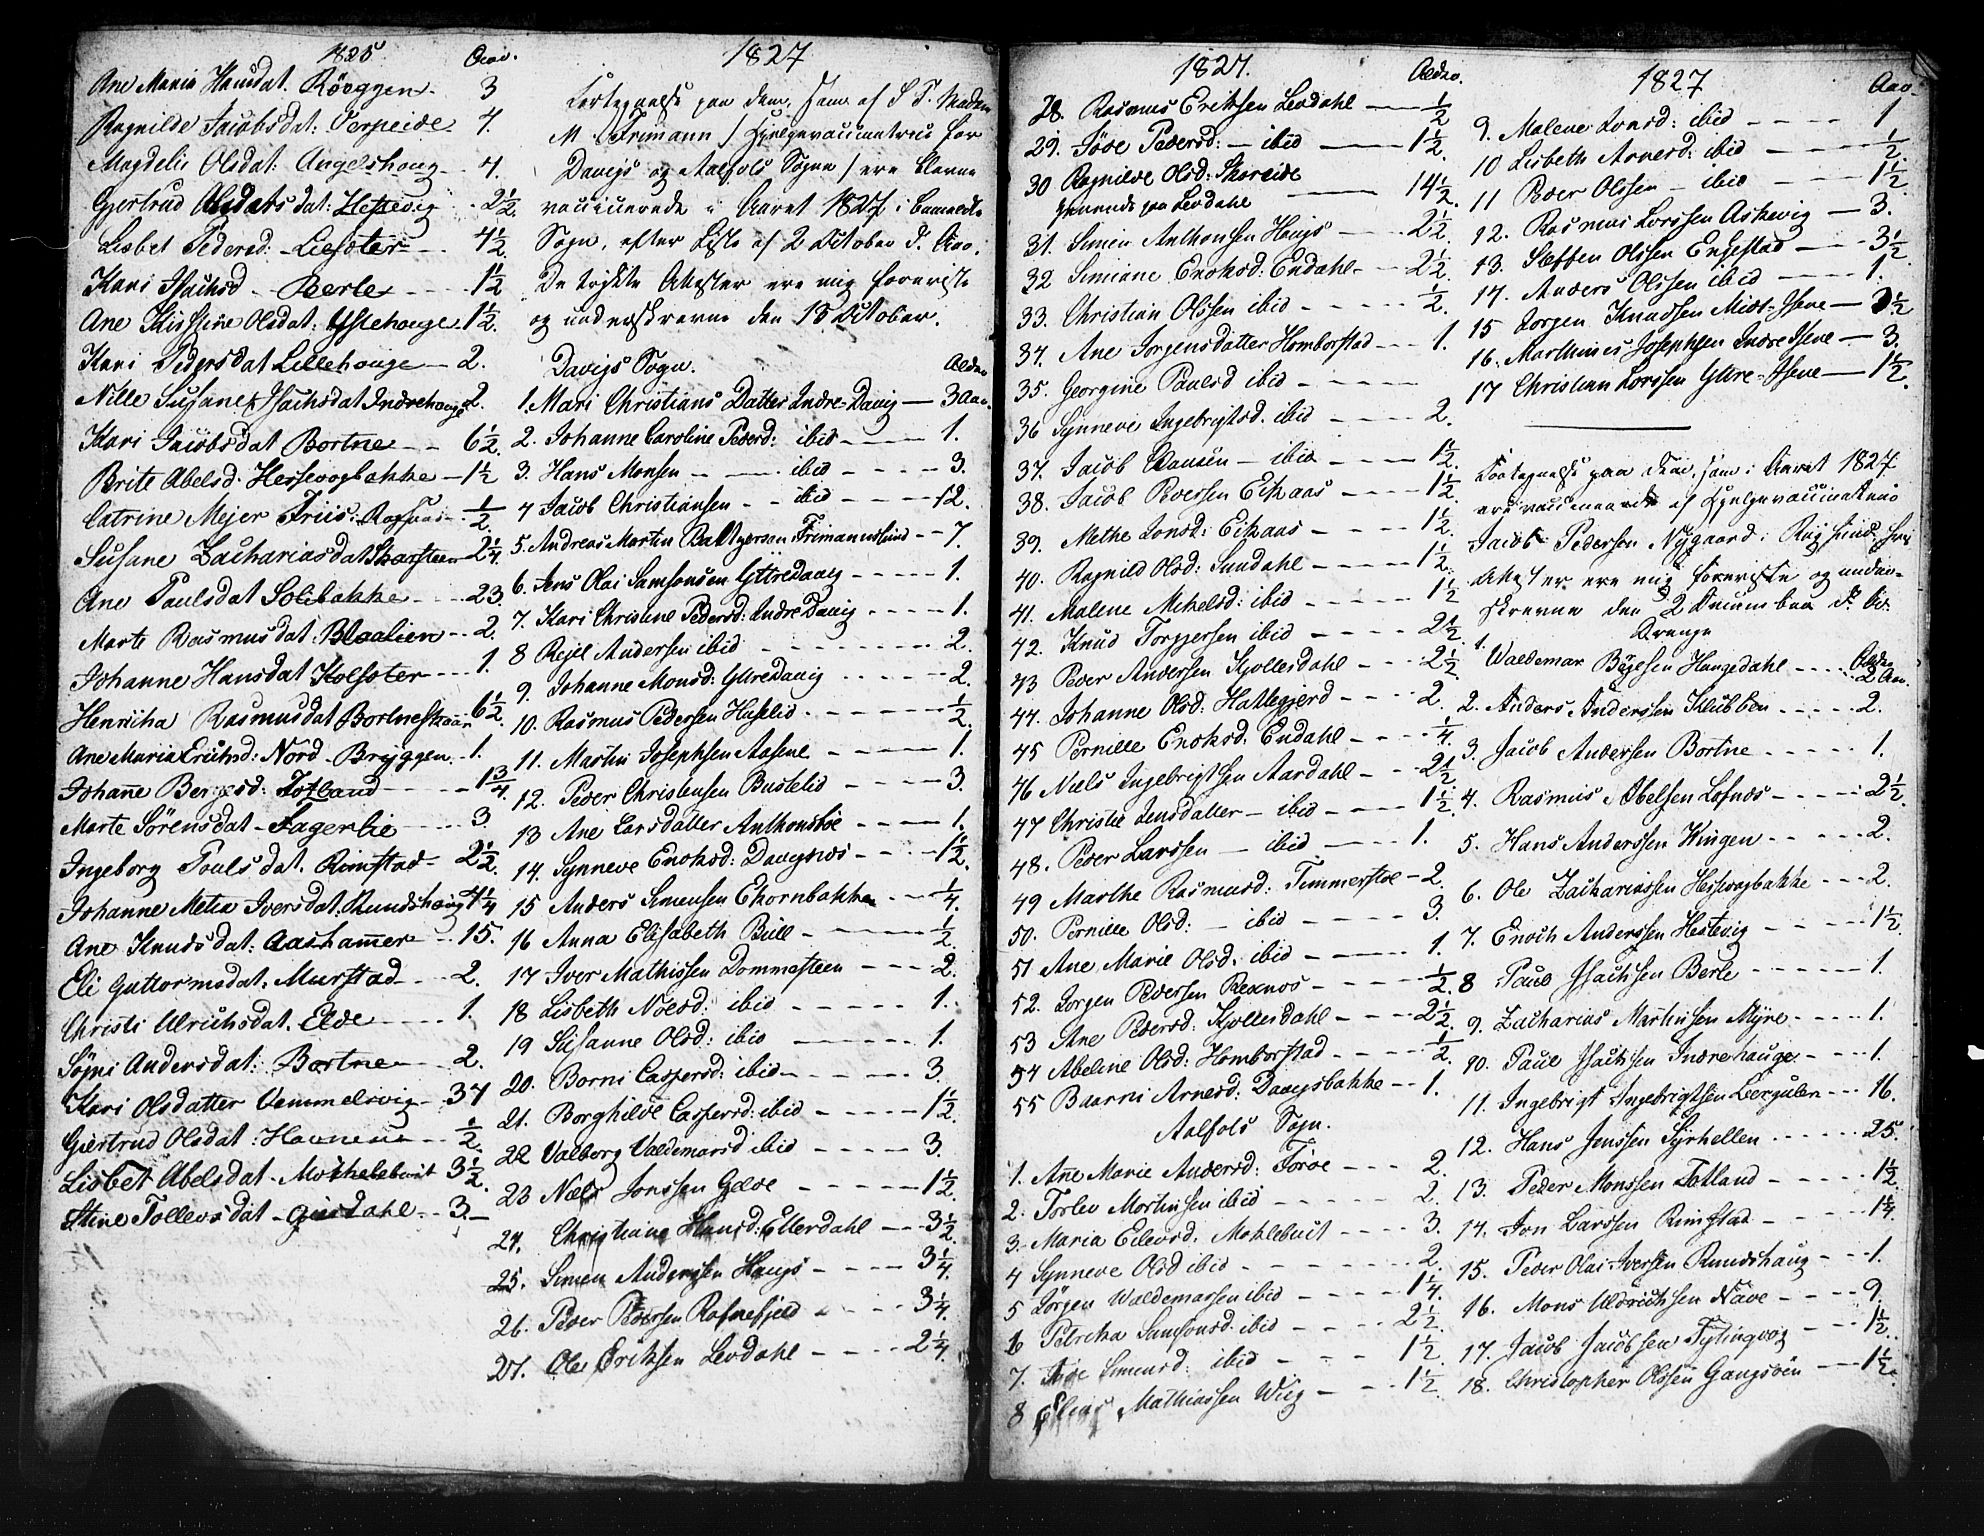 1825. Aar.
Ane Maria Hansdat. Röeggen - 3
Ragnilde Jacobsdat: Verpeide - 4.
Magdeli Olsdat: Angelshoug - 4.
Gjertrud dat: Hessevig - 2 1/2.
Lisbet Pedersd: Liesöter - 4 1/2.
Kari Isachsd - Berle - 1 1/2
Ane Kirstine Olsdat: Ystehouge 1 1/2.
Kari Pedersdat Lillehouge - 2.
Nille Susane Isachsdat Indrehouge 2.
Kari Jacobsdat Bortne - 6 1/2.
Brite Abelsd. Hessevogbakke - 1 1/2
Catrine Mejer Friis: - 1/2.
Susane Zachariasdat Skarsteen - 2 1/4.
Ane Paulsdat Solibakke - 23.
Marte Rasmusdat: Blaalien - 2.
Johanne Hansdat Kolsöter - 1.
Henricha Rasmusdat Bortneskaar 6 1/2.
Ane Maria Erichsd: Nord - Bryggen - 1.
Johane Bergesd: Totland - 1 3/4.
Marte Sörensdat - Fagerlie - 3.
Ingeborg Poulsdat. Rimstad - 2 1/2.
Johanne Metea Iversdat. Rundshoug 4 1/4
Ane Knudsdat: Aashamer - 15.
Eli Guttormsdat. Murstad - 2.
Christi Ulrichsdat. Elde - 1.
Sögni Andersdat: Bortne - 2.
Kari Olsdatter Vemmelsvig - 34
Giertrud Olsdat: Havnene - 1/2.
Lisbet Abelsdat - Mothelebust 3 1/2.
Stine Tollevsdat - Giesdahl - 3.
1827
Fortegnelse paa dem, som af S. T. Madam
M. Frimann / Hjelpevaccinatrice for
Davigs og Aalfots Sogne / ere blevne
vaccinerede i Aaret 1827 i bemeldte
Sogn, efter Liste af 2 October d. Aar.
De trykte Attester ere mig foreviste
og underskrevne den 18 October.
Davigs Sogn. Alder
1. Mari Christians Datter Indre-Davig - 3 Aar.
2. Johanne Caroline Pedersd: ibid - 1.
3. Hans Monsen - ibid - 3.
4 Jacob Christiansen - ibid - 12.
5. Andreas Martin Baltzersen Frimannslund - 7.
6. Jens Olai Samsonsen Yttredavig - 1.
7. Kari Christine Pedersd: Indre Davig - 1.
8 Rejel Andersen ibid - 2.
9. Johanne Monsd: Yttredavig - 2.
10. Rasmus Pedersen Haselid - 1/2.
11. Martin Josephsen Aasene - 1.
12. Peder Christensen Buskelid - 3.
13 Ane Larsdatter Anthonsböe - 1.
14. Synneve Enoksd: Davigsnos - 1 1/2.
15 Anders Simensen Ekornbakken - 1/4.
16 Anna Elisabeth Bull - 1/2.
17 Iver Mathissen Dommesteen - 2.
18 Lisbeth Noesd: ibid - 1.
19 Susanne Olsd: ibid - 1.
20. Borni Caspersd: ibid - 3
21. Borghilde Caspersd: ibid - 1 1/2.
22 Valborg Valdemarsd ibid - 3.
23 Niels Jonssen Gdve - 1 1/2.
24. Christiane Hansd: Ellerdahl - 3 1/2.
25. Simen Andersen Haugs - 3 1/4.
26. Peder Pedersen Rafnefjeld - 3 1/4.
27. Ole Eriksen Levdahl - 2 1/4.
1827. Alder.
28. Rasmus Eriksen Levdahl - 1/2
29. Jöde Pedersd: - ibid - 1 1/2.
30 Ragnilde Olsd: Skoreide
tjenende paa Levdahl - 14 1/2.
31. Simen Anthonsen Haugs - 2 1/2.
32 Simiane Enoksd: Endahl - 2 1/2.
33. Christian Olssen ibid - 1/2.
34. Ane Jorgensdatter Homborstad - 1.
35. Georgine Paulsd ibid -
36 Synneve Ingebrigtsd. ibid - 2.
37. Jacob Clausen - ibid - 1 1/2.
38. Jacob Pedersen Eikaas - 1 1/2.
39. Methe Jonsd: Eikaas - 1 1/2.
40. Ragnild Olsd: Sundahl - 1 1/2.
41. Malene Mikelsd: ibid - 1 1/2
42. Knud Torgjersen ibid - 2 1/2.
43 Peder Andersen Kjollesdahl - 2 1/2.
44. Johanne Olsd: Hatlegjerd - 2.
45 Pernille Enoksd: Endahl - 1/4.
46 Niels Ingebrigtsen Aardahl - 2 1/2.
47 Christie Jensdatter - ibid - 1 1/2.
48. Peder Larssen - ibid - 1.
49 Marthe Rasmusd: Timmerstöe - 2.
50. Pernille Olsd: - ibid - 3.
51 Ane Marie Olsd: ibid - 1.
52. Jorgen Pedersen Rexnos - 1/2.
53 Ane Pedersd: Kjollesdahl - 2 1/2.
54 Abeline Olsd: Homborstad - 1/2.
55 Baarni Arnesd: Davigsbakke - 1.
Aalfots Sogn.
1. Ane Marie Andersd: Förde - 2.
2. Torlev Mortensen ibid - 2.
3. Maria Eilevsd: Moklebust - 3.
4 Synneve Olsd ibid - 2.
5 Jörgen Waldemarsen ibid - 1 1/4.
6 Petricka Samsonsd. ibid - 2 1/2.
7. Simensd: ibid - 1 1/2.
8 Elias Mathiassen Wiig - 1 1/2.
1827 Aar.
9. Malene Jonsd: ibid - 1
10 Lisbeth Arnesd: ibid - 1/2.
11 Peder Olssen - ibid - 1 1/2.
12. Rasmus Larssen Askevig - 3.
13. Steffen Olssen Engestad - 3 1/2.
14. Anders Olssen ibid - 1.
15 Jorgen Knudsen Midt-Isene - 3 1/2
16. Marthinus Josephsen Indre Isene - 3.
17 Christian Larssen Yttre-Isene - 1 1/2.
Fortegnelse paa dem, som i Aaret 1827
ere vaccinerede af Hjelpevaccinateur
Jacob Pedersen Nygaard i
Attester ere mig foreviste og under-
skrevne den 2 December d. A.
Drenge
1. Waldemar Böyesen Haugedahl - Alder 2 Aar.
2. Anders Anderssen Klubben - 2.
3. Jacob Andersen Bortne - 1.
4. Rasmus Abelsen Lofnæs - 2 1/2.
5. Hans Anderssen Wingen - 2.
6. Ole Zachariassen Hessevogbakke - 2.
7. Enoch Anderssen Hestevig - 1 1/2.
8 Paul Isachsen Berle - 1.
9. Zacharias Martinsen Myre - 1.
10. Paul Isachsen Indrehauge - 1.
11. Ingebrigt Ingebrigtsen Leergulen - 16.
12. Hans Jenssen Syrhellen - 25.
13. Peder Monssen Totland - 1 1/2.
14. Jon Larssen Rimstad - 1 1/4.
15. Peder Olai Iversen Rundshaug - 1.
16. Mons Uldrichsen Nave - 9.
17. Jacob Jacobsen Tytingvog - 1 1/2.
18. Christopher Olssen Gangsöen - 1 1/2.